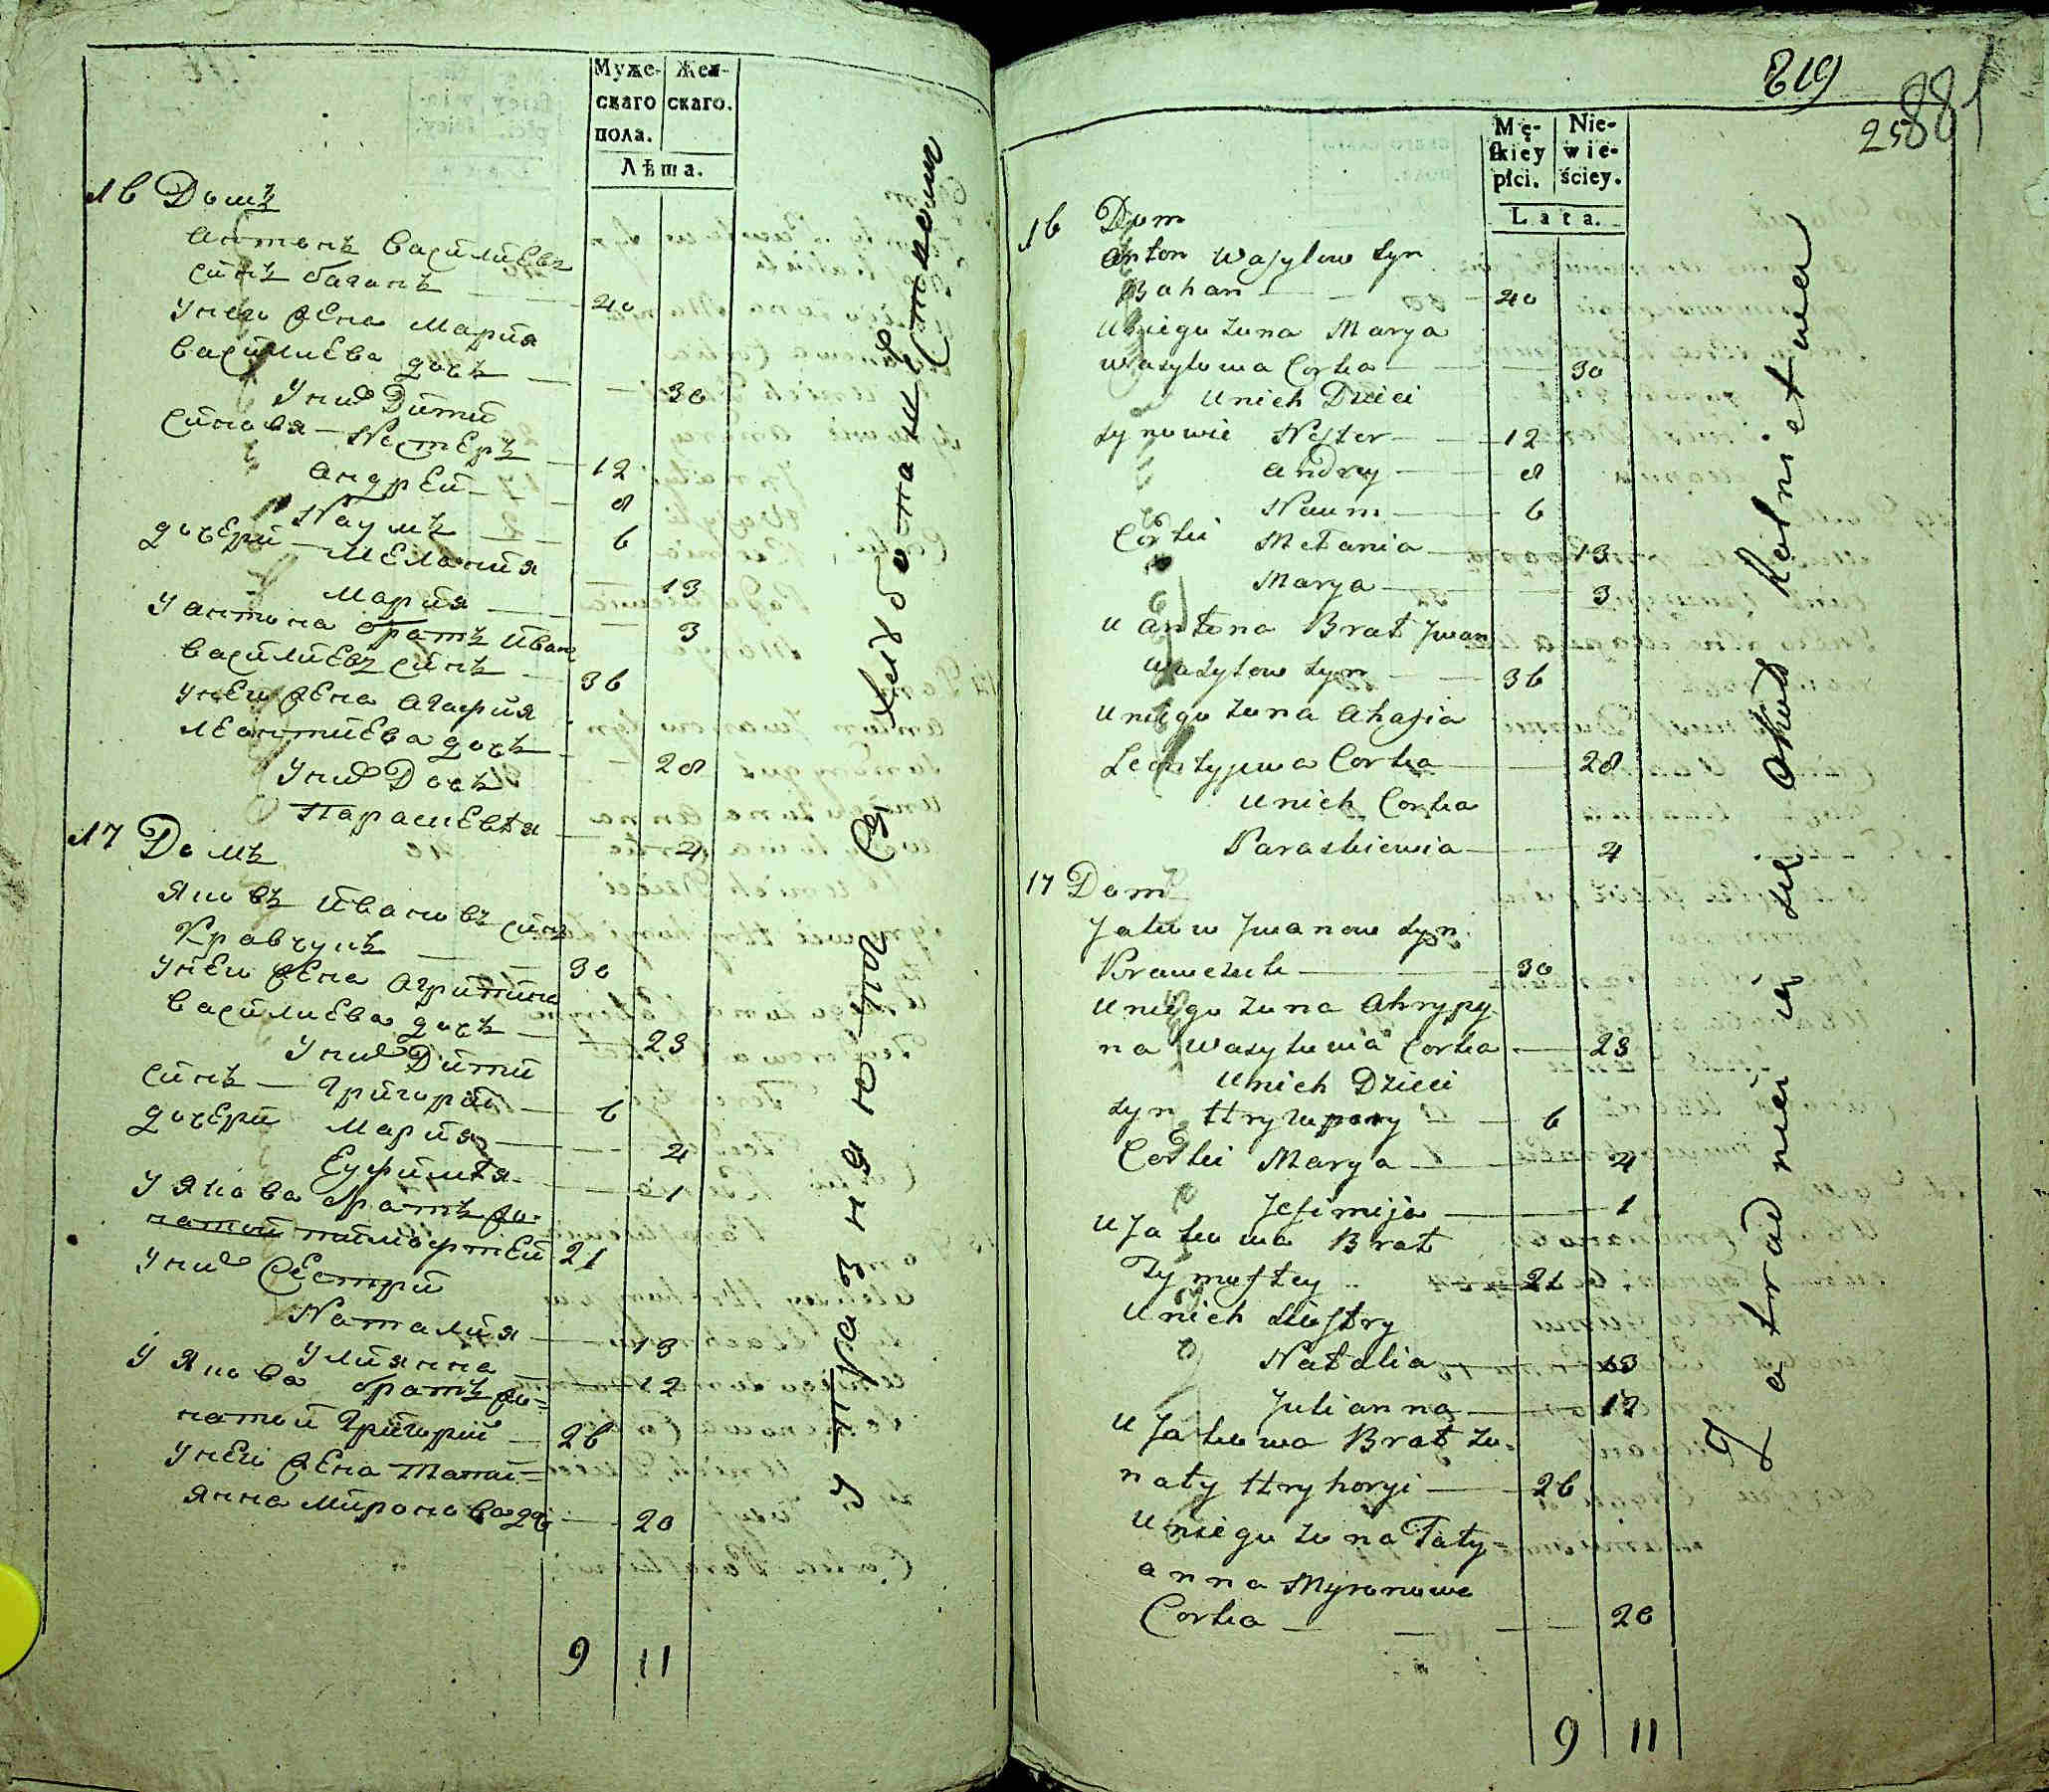 Муже-
скаго
пола.
Жен-
скаго.
Лѣта.
16 Домъ
Антонъ Василиевъ
синъ Баганъ — 40
У него жена Мария
Василиева дочь — 30
У них Дити
Синовя — Нестеръ — 12
Андрей — 8
Наумъ — 6
дочери — Мелания — 13
Мария — 3
У Антона братъ Иван
Василиевъ синъ — 36
У него жена Агафия
Леонтиева дочь — 28
У них Дочь
Парасцевия — 4
17 Домъ
Яковъ Ивановъ синъ
Кравчукъ — 30
У него жена Агрипина
Василиева дочь — 23
У них Дити
синъ — Григорий — 6
дочери Мария — 4
Еуфимия — 1
У Якова братъ жо-
натий Тимофтей 21
У них Сестри
Наталия — 13
Улиянна — 12
У Якова братъ жо=
натой Григорий — 26
У него жена Тати=
янна Миронова до — 20
9 11
Упразняются Хлѣбопашеством
819
2588
Mę-
ſkiey
płci.
Nie-
wie-
ściey.
Lata.
16 Dom
Anton Wasylow Syn
Bahan — 40
U niego Zona Marya
Wasylowa Corka — 30
U nich Dzieci
Synowie Nester — 12
Andrey — 8
Naum — 6
Corki Mełania — 13
Marya — 3
U Antona Brat Jwan
Wasylow Syn — 36
U niego Zona Ahafia
Leontyjewa Corka — 28
U nich Corka
Paraskiewia — 4
17 Dom
Jakow Jwanow Syn
Krawczuk — 30
U niego Zona Ahrypy-
na Wasylowa Corka — 23
U nich Dzieci
Syn Hryhory — 6
Corki Marya — 4
Jefimija — 1
U Jakowa Brat
Tymoftey — 21
U nich Siostry
Natalia — 13
Julianna — 12
U Jakowa Brat Zo-
naty Hryhoryi — 26
U niego Zona Taty=
anna Myronowa
Corka — 20
9 11
Zatrudnienia się około Rolnictwa